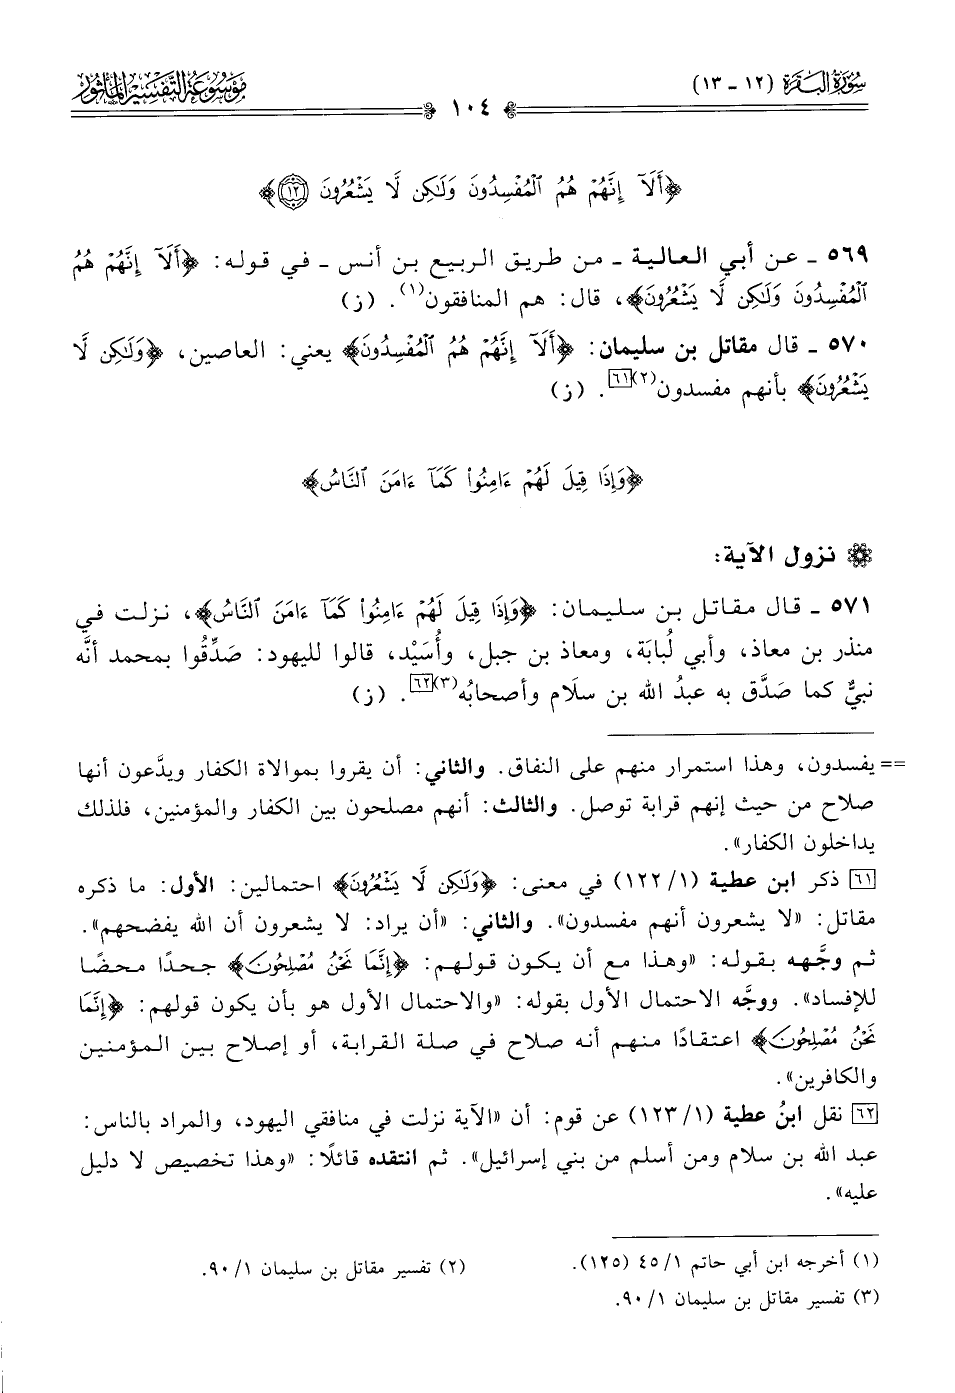 سورة البقرة (١٢ - ١٣)
موسوعة التفسير المأثور
١٠٤
﴿أَلَآ إِنَّهُمْ هُمُ ٱلْمُفْسِدُونَ وَلَٰكِن لَّا يَشْعُرُونَ ١٢﴾
٥٦٩ - عن أبي العالية - من طريق الربيع بن أنس - في قوله: ﴿أَلَآ إِنَّهُمْ هُمُ
ٱلْمُفْسِدُونَ وَلَٰكِن لَّا يَشْعُرُونَ﴾، قال: هم المنافقون(١). (ز)
٥٧٠ - قال مقاتل بن سليمان: ﴿أَلَآ إِنَّهُمْ هُمُ ٱلْمُفْسِدُونَ﴾ يعني: العاصين، ﴿وَلَٰكِن لَّا
يَشْعُرُونَ﴾ بأنهم مفسدون(٢)[٦١]. (ز)
﴿وَإِذَا قِيلَ لَهُمْ ءَامِنُوا۟ كَمَآ ءَامَنَ ٱلنَّاسُ﴾
نزول الآية:
٥٧١ - قال مقاتل بن سليمان: ﴿وَإِذَا قِيلَ لَهُمْ ءَامِنُوا۟ كَمَآ ءَامَنَ ٱلنَّاسُ﴾، نزلت في
منذر بن معاذ، وأبي لُبابَة، ومعاذ بن جبل، وأُسَيْد، قالوا لليهود: صَدِّقُوا بمحمد أنَّه
نبيٌّ كما صَدَّق به عبدُ الله بن سلَام وأصحابُه(٣)[٦٢]. (ز)
== يفسدون، وهذا استمرار منهم على النفاق. والثاني: أن يقروا بموالاة الكفار ويدَّعون أنها
صلاح من حيث إنهم قرابة توصل. والثالث: أنهم مصلحون بين الكفار والمؤمنين، فلذلك
يداخلون الكفار».
[٦١] ذكر ابن عطية (١/ ١٢٢) في معنى: ﴿وَلَٰكِن لَّا يَشْعُرُونَ﴾ احتمالين: الأول: ما ذكره
مقاتل: «لا يشعرون أنهم مفسدون». والثاني: «أن يراد: لا يشعرون أن الله يفضحهم».
ثم وجَّهه بقوله: «وهذا مع أن يكون قولهم: ﴿إِنَّمَا نَحْنُ مُصْلِحُونَ﴾ جحدًا محضًا
للإفساد». ووجَّه الاحتمال الأول بقوله: «والاحتمال الأول هو بأن يكون قولهم: ﴿إِنَّمَا
نَحْنُ مُصْلِحُونَ﴾ اعتقادًا منهم أنه صلاح في صلة القرابة، أو إصلاح بين المؤمنين
والكافرين».
[٦٢] نقل ابنُ عطية (١/ ١٢٣) عن قوم: أن «الآية نزلت في منافقي اليهود، والمراد بالناس:
عبد الله بن سلام ومن أسلم من بني إسرائيل». ثم انتقده قائلًا: «وهذا تخصيص لا دليل
عليه».
(١) أخرجه ابن أبي حاتم ١/ ٤٥ (١٢٥).
(٢) تفسير مقاتل بن سليمان ١/ ٩٠.
(٣) تفسير مقاتل بن سليمان ١/ ٩٠.